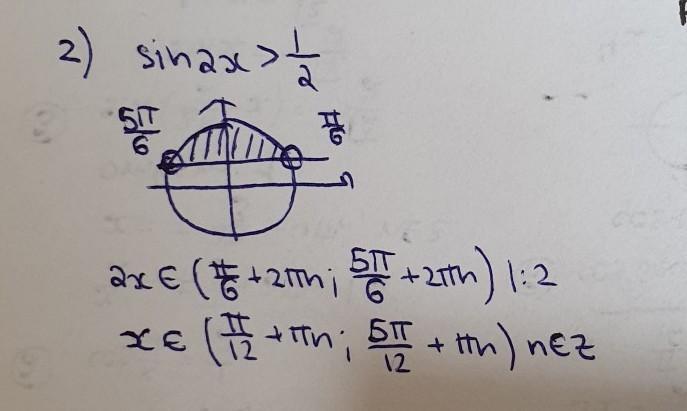 2) sin2x > 1/2
5π/6 π/6
2x ∈ (π/6 + 2πn; 5π/6 + 2πn) |:2
x ∈ (π/12 + πn; 5π/12 + πn) n ∈ Z